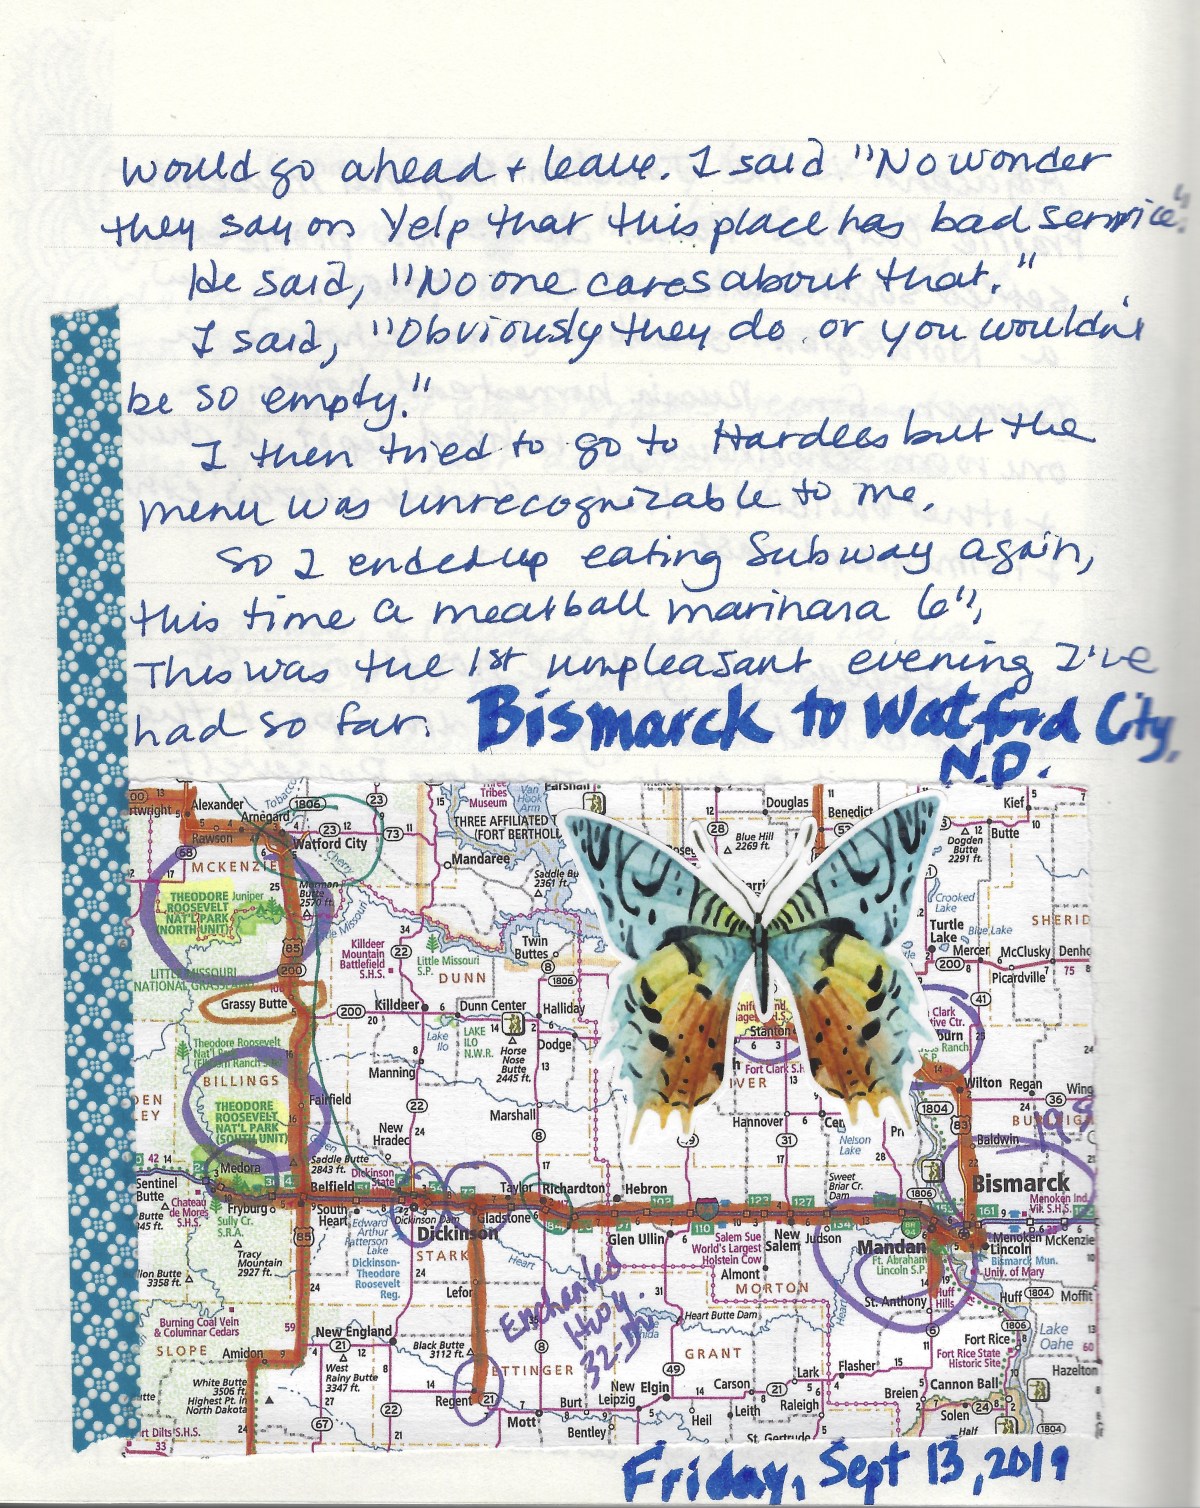 would go ahead + leave. I said "No wonder
they say on Yelp that this place has bad service".
He said, "No one cares about that."
I said, "Obviously they do or you wouldn't
be so empty."
I then tried to go to Hardees but the
menu was unrecognizable to me.
So I ended up eating Subway again,
this time a meatball marinara 6",
This was the 1st unpleasant evening I've
had so far.
Bismarck to Watford City,
N.D.
Alexander
Arnegard
Rawson
1806
23
12
73
Watford City
MCKENZIE
THEODORE
ROOSEVELT
NAT'L PARK
(NORTH UNIT)
Juniper
Tribes
Museum
Van
Hook
Arm
THREE AFFILIATED
(FORT BERTHOL
Mandaree
Saddle Bu
2361 ft.
Douglas
Benedict
28
Blue Hill
2269 ft.
Kief
Butte
Dogden
Butte
2291 ft.
Crooked
Lake
Turtle
Lake
Blue Lake
SHERID
Mercer
McClusky
Denho
200
Pickardville
75
Killdeer
Mountain
Battlefield
S.H.S.
22
Little Missouri
S.P.
DUNN
Twin
Buttes
8
1806
85
200
LITTLE MISSOURI
NATIONAL GRASSLAND
Grassy Butte
200
Killdeer
Dunn Center
Halliday
Lake
Ilo
LAKE
ILO
N.W.R.
Horse
Nose
Butte
2445 ft.
Dodge
Manning
Marshall
Theodore Roosevelt
Nat'l Park
BILLINGS
Fairfield
THEODORE
ROOSEVELT
NAT'L PARK
(SOUTH UNIT)
New
Hradec
Stanton
Fort Clark S.H.
Hannover
31
Nelson
Lake
41
Clark
Wilton
Regan
Wing
36
1804
83
Baldwin
Medora
Sentinel
Butte
Saddle Butte
2843 ft.
Belfield
Dickinson
State
Taylor
Richardton
Hebron
Sweet
Briar Cr.
Dam
1806
Bismarck
Menoken Ind.
Vill. S.H.S.
Chateau
de Mores
S.H.S.
Fryburg
Sully Cr.
S.R.A.
South
Heart
Edward
Arthur
Patterson
Lake
Dickinson Dam
Gladstone
Dickinson
STARK
Dickinson-
Theodore
Roosevelt
Reg.
Glen Ullin
Salem Sue
World's Largest
Holstein Cow
New
Salem
Judson
Mandan
Ft. Abraham
Lincoln S.P.
Lincoln
Menoken
McKenzie
Bismarck Mun.
Univ. of Mary
Tracy
Mountain
2927 ft.
3358 ft.
Heart
Almont
MORTON
St. Anthony
Huff
Hills
Huff
1804
Moffit
Burning Coal Vein
& Columnar Cedars
SLOPE
Amidon
New England
21
West
Rainy Butte
3347 ft.
Black Butte
3112 ft.
Enchanted
Hwy.
32-mi.
Heart Butte Dam
GRANT
Fort Rice
Fort Rice State
Historic Site
1806
Lake
Oahe
Hazelton
White Butte
3506 ft.
Highest Pt. in
North Dakota
Regent
21
Mott
Burt
Bentley
New
Leipzig
Elgin
49
Carson
Heil
Leith
Lark
Raleigh
Flasher
Breien
Cannon Ball
Solen
24
67
22
Friday, Sept 13, 2019